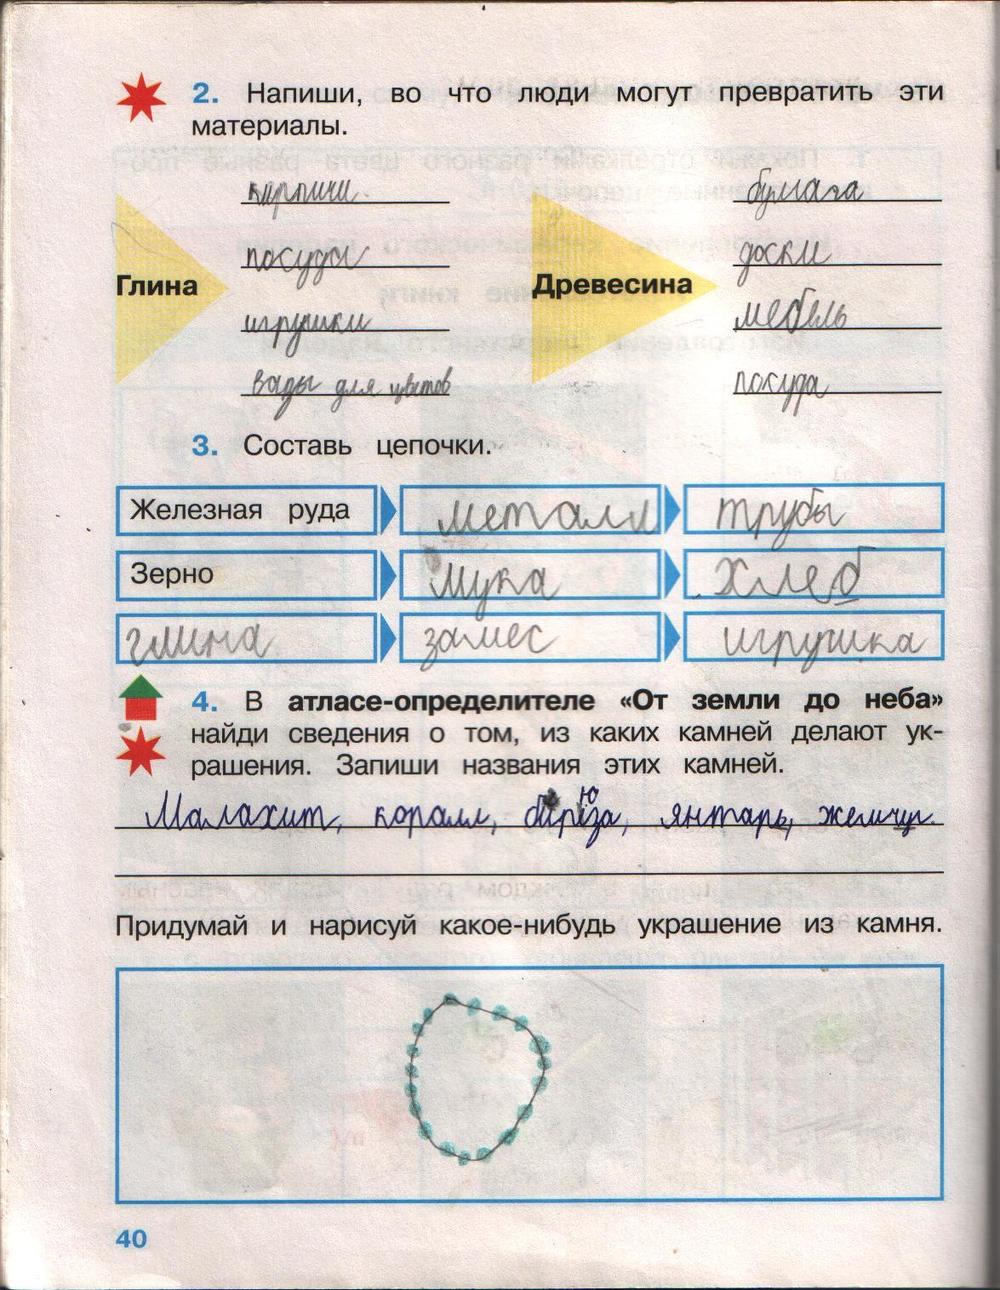 2. Напиши, во что люди могут превратить эти
материалы.
Глина
кирпичи
посуды
игрушки
вазы для цветов
Древесина
бумага
доски
мебель
посуда
3. Составь цепочки.
Железная руда металл трубы
Зерно мука хлеб
глина замес игрушка
4. В атласе-определителе «От земли до неба»
найди сведения о том, из каких камней делают ук-
рашения. Запиши названия этих камней.
Малахит, коралл, бирюза, янтарь, жемчуг.
Придумай и нарисуй какое-нибудь украшение из камня.
40